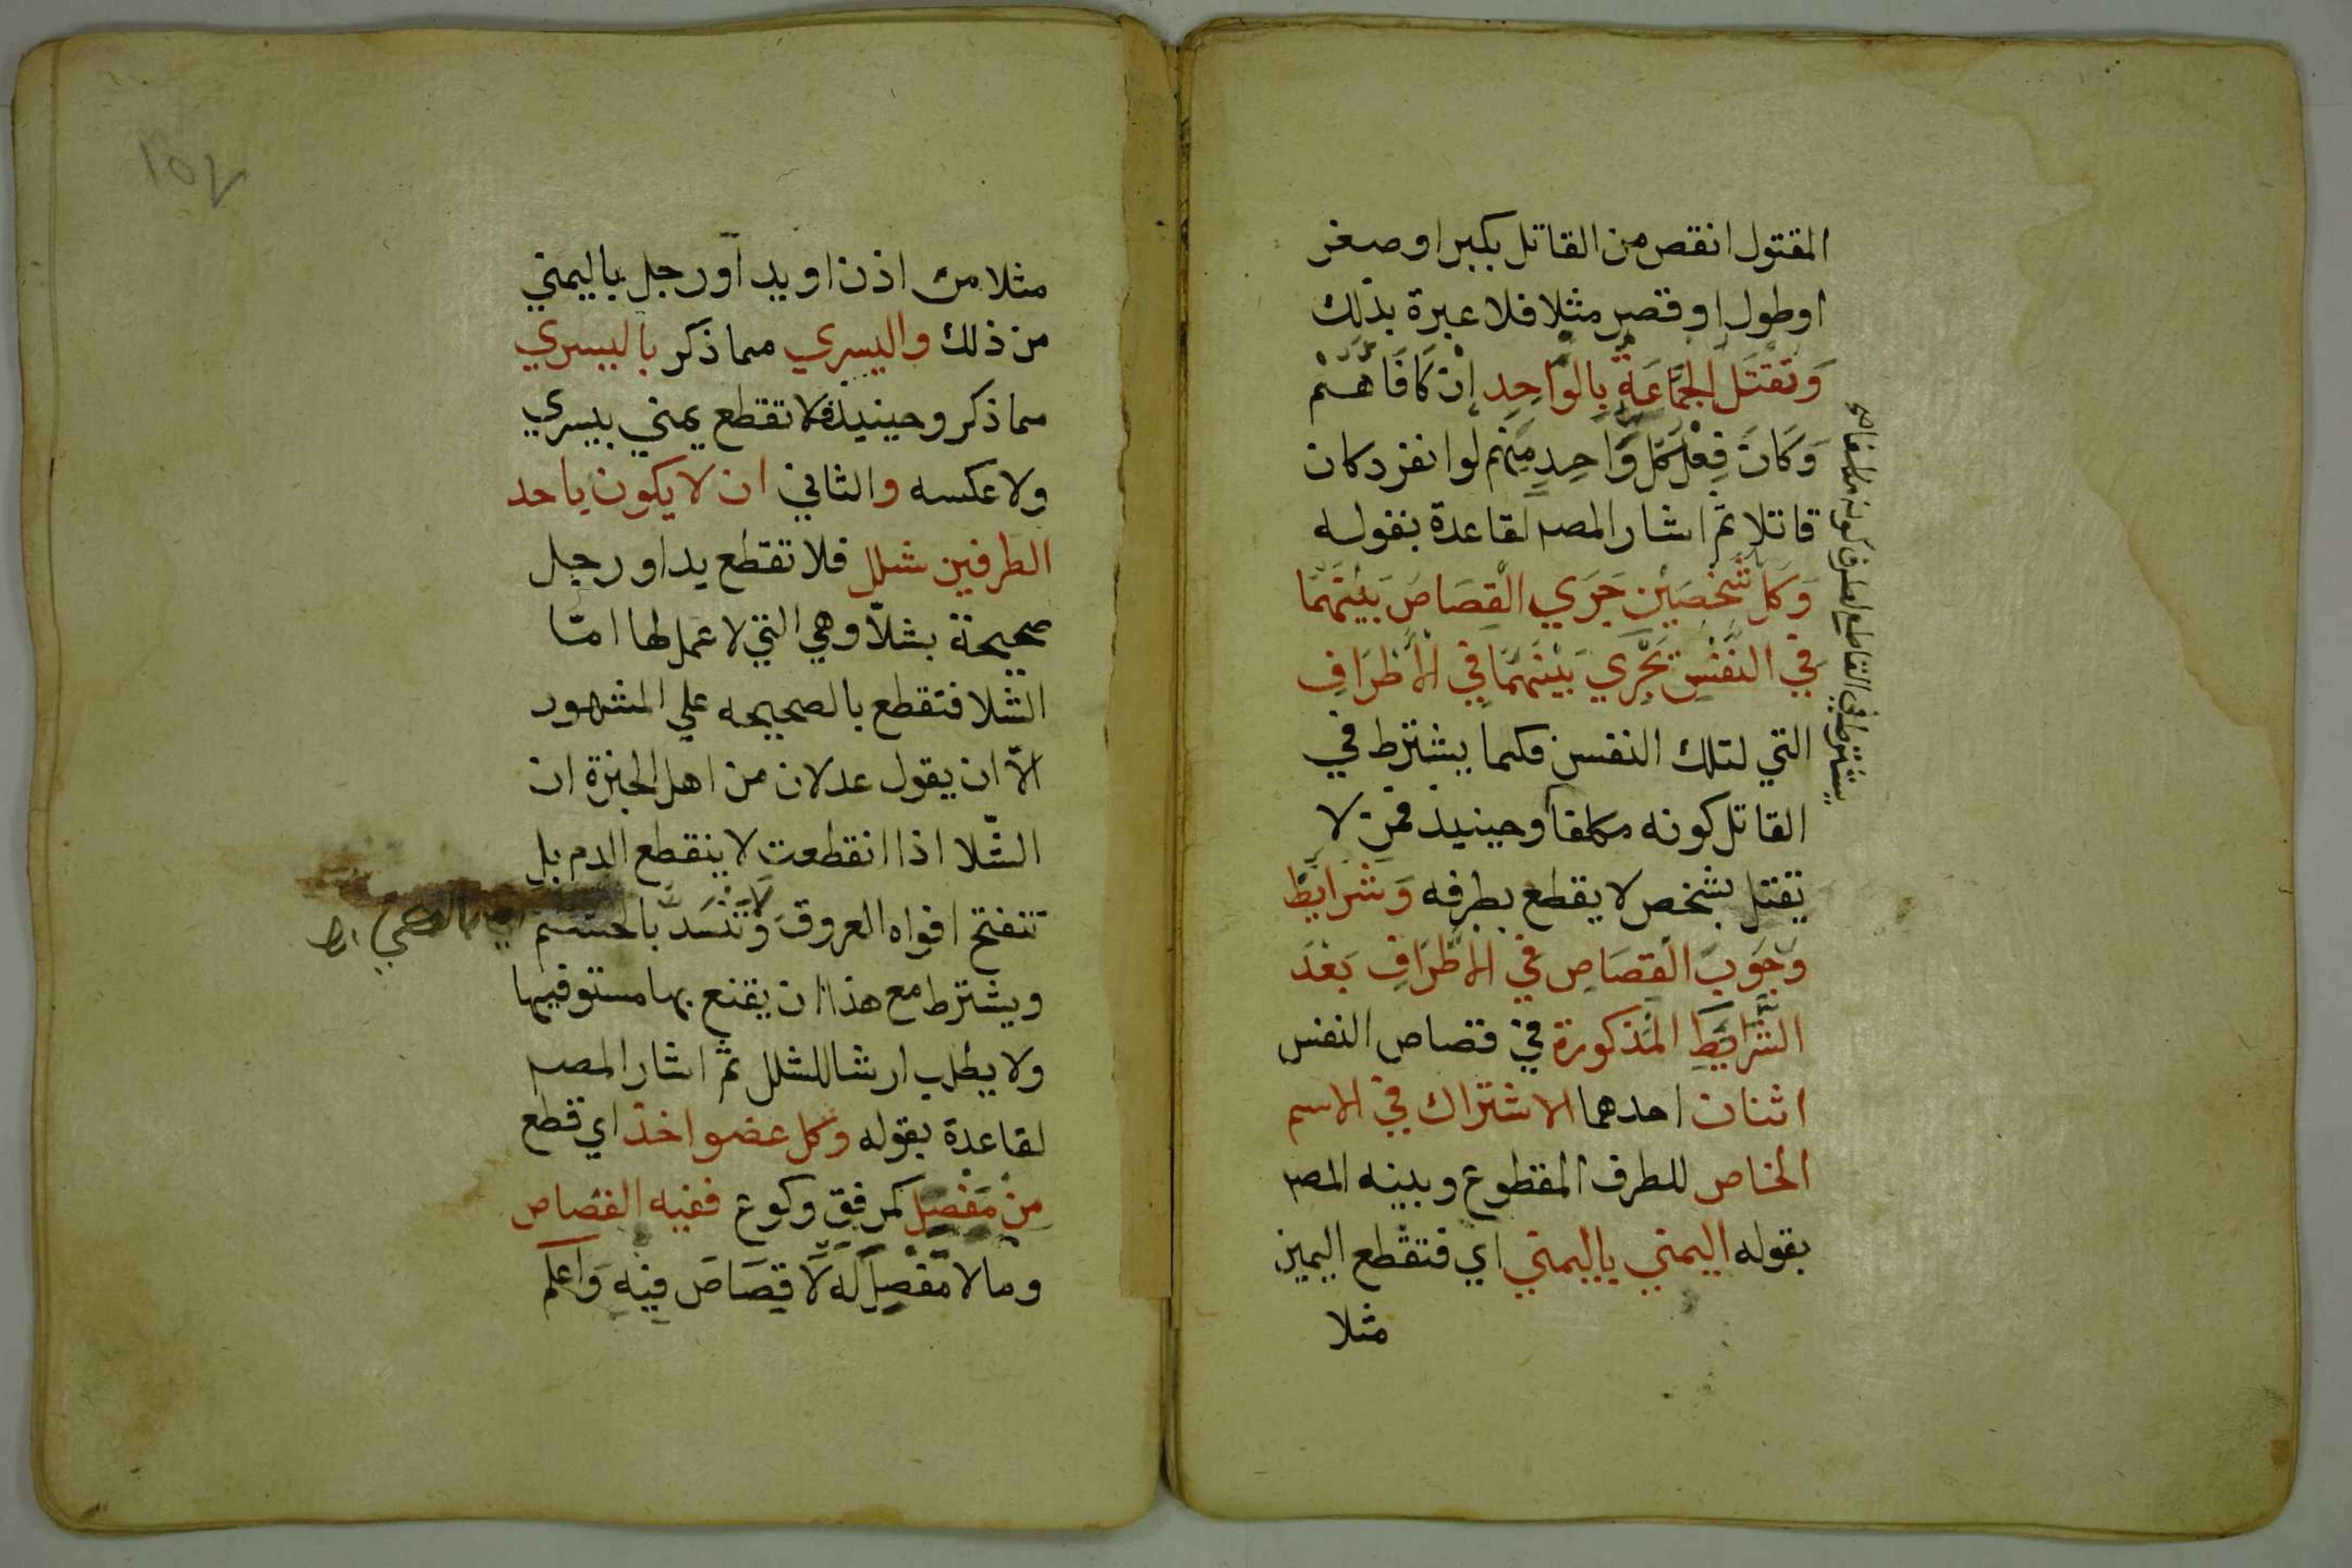 المقتول انقص من القاتل بكبر او صغر
او طول او قصر مثلا فلا عبرة بذلك
وَتقْتَل الجَمَاعَةُ بِالوَاحِدِ اِنْ كَافَأهُمْ
وَكَانَ فِعْلُ كُلِّ وَاحِدٍ مِنهم لو انفرد كان
قاتلا ثمّ اشار المصـ لقاعدة بقوله
وَكلّ شَخْصَيْنِ جَرَي القِصَاصُ بَيْنَهُمَا
فِي النَّفْسِ يَجْرِي بَيْنَهُمَا فِي الاَطْرَافِ
التي لتلك النفس فكما يشترط في
القاتل كونه مكلفا وحينيذ فمن لا
يقتل بشخص لا يقطع بطرفه وَشَرَايِطُ
وُجُوب القِصَاصِ فِي الاَطْرَافِ بَعْدَ
الشَّرَايِطِ المَذكورة في قصاص النفس
اثنان احدهما الاشتراك في الاسم
الخاص للطرف المقطوع وبينه المصـ
بقوله اليمني باليمني اي فتقطع اليمين
مثلا
يشترط في القاطع لطرف كونه مكلفا
مثلا من اذن او يد او رجل باليمني
من ذلك واليسري مما ذكر باليسري
مما ذكر وحينيذ فلا تقطع يمني بيسري
ولا عكسه والثاني ان لا يكون باحد
الطرفين شلل فلا تقطع يد او رجل
صحيحة بشلّا وهي التي لا عمل لها امّا
الشّلا فتقطع بالصحيحه علي المشهور
الاّ ان يقول عدلان من اهل الخبرة ان
الشّلا اذا انقطعت لا ينقطع الدم بل
تنفتح افواه العروق وَلَا تَنْسَدُّ بالحسم
ويشترط مع هذا ان يقنع بها مستوفيها
ولا يطلب ارشا للشلل ثمّ اشار المصـ
لقاعدة بقوله وكل عضو اخذ اي قطع
مِنْ مَفْصِلٍ كمرفق وكوع ففيه القصاص
وما لا مَفْصِلَ لَه لَا قِصَاصَ فِيْهِ وَاعلم